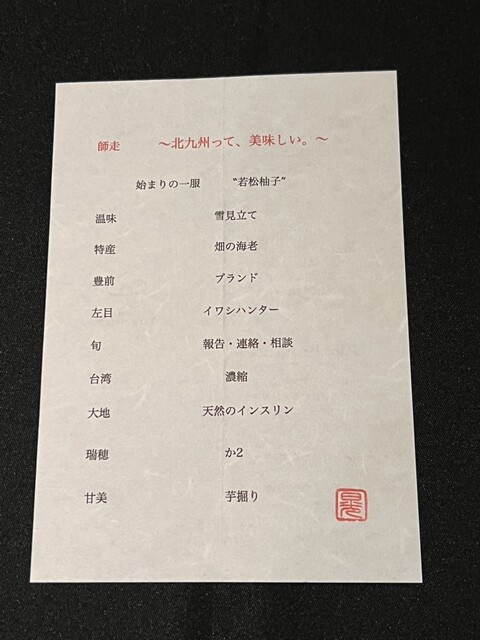 師走 ～北九州って、美味しい。～
始まりの一服 “若松柚子”
温味 雪見立て
特産 畑の海老
豊前 ブランド
左目 イワシハンター
旬 報告・連絡・相談
台湾 濃縮
大地 天然のインスリン
瑞穂 か2
甘美 芋掘り